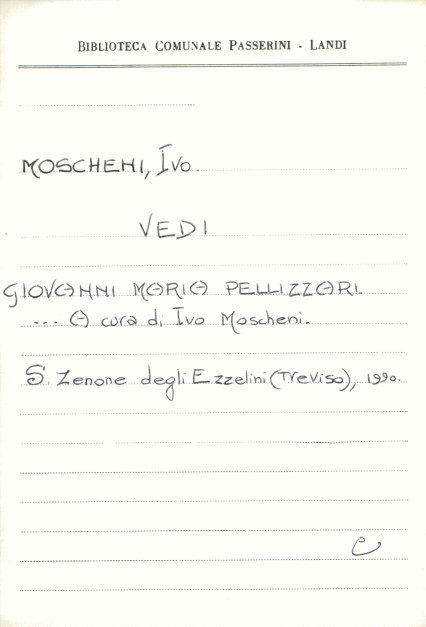 BIBLIOTECA COMUNALE PASSERINI - LANDI
MOSCHENI, Ivo.
VEDI
GIOVANNI MARIA PELLIZZARI.
... A cura di Ivo Moscheni.
S. Zenone degli Ezzelini (Treviso), 1990.